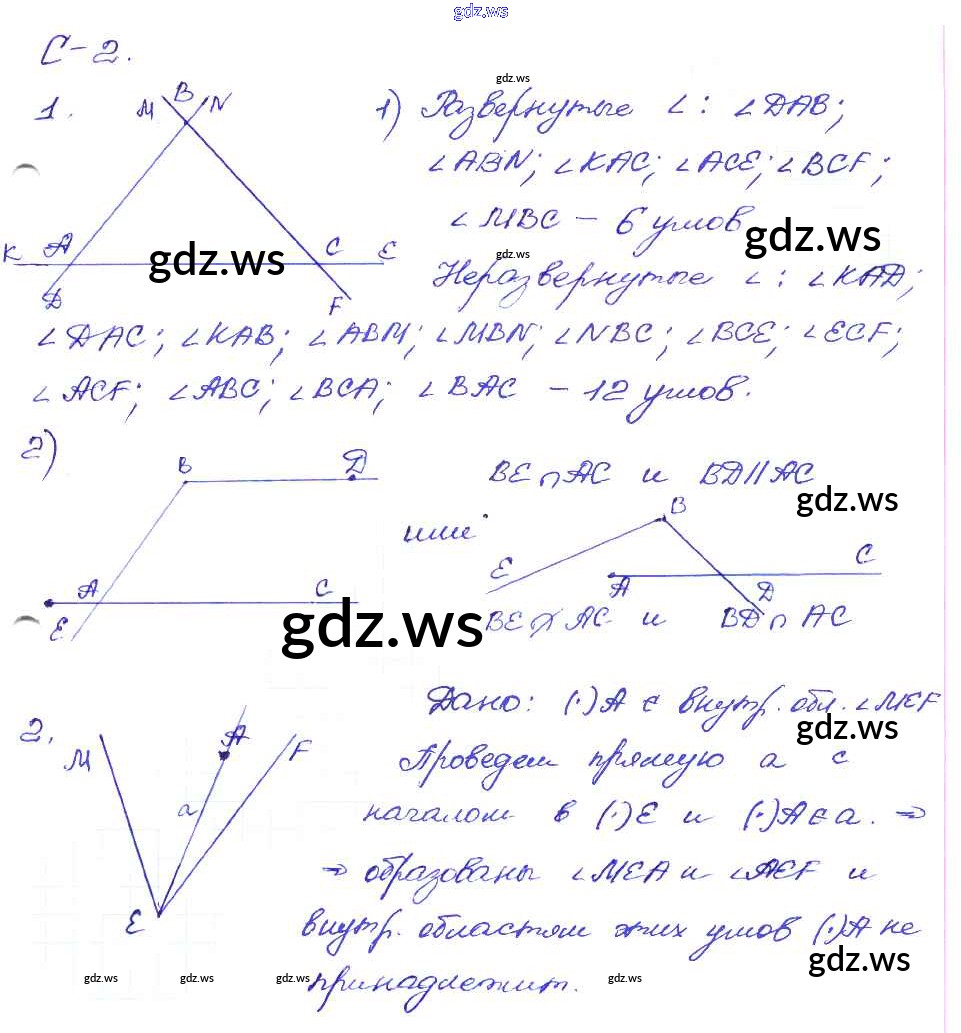 gdz.ws
С-2.
gdz.ws
1. М В N 1) Развернутые ∠: ∠DAB;
∠ABN; ∠KAC; ∠ACE; ∠BCF;
∠MBC – 6 углов
gdz.ws
К А С Е
gdz.ws
gdz.ws
Неразвернутые ∠: ∠KAD;
D F
∠DAC; ∠KAB; ∠ABM; ∠MBN; ∠NBC; ∠BCE; ∠ECF;
∠ACF; ∠ABC; ∠BCA; ∠BAC – 12 углов.
2)
B D BE∩AC и BD∥AC
gdz.ws
или
B
E C
A D
A C
E
BE∩̸AC и BD∩AC
gdz.ws
2. Дано: (·)A ∈ внутр. обл. ∠MEF
gdz.ws
M A F
Проведем прямую a с
a
началом в (·)E и (·)A∈a. ⇒
⇒ образованы ∠MEA и ∠AEF и
E
внутр. областям этих углов (·)A не
gdz.ws
принадлежит.
gdz.ws gdz.ws gdz.ws gdz.ws